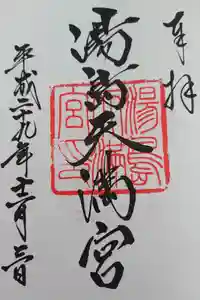 奉拝
湯島天満宮
平成二十九年十一月三日